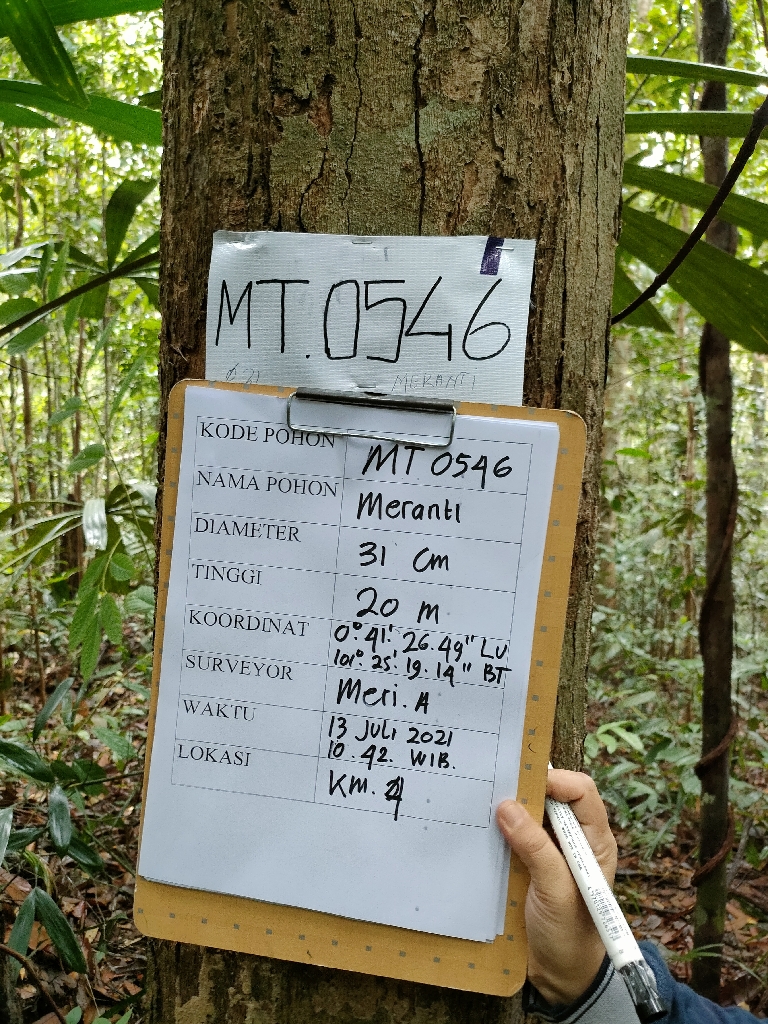 MT.0546
MERANTI
KODE POHON MT 0546
NAMA POHON Meranti
DIAMETER 31 Cm
TINGGI 20 m
KOORDINAT 0°.41'.26.49" LU
101°.25'.19.14" BT
SURVEYOR Meri.A
WAKTU 13 Juli 2021
10.42. WIB.
LOKASI KM.4